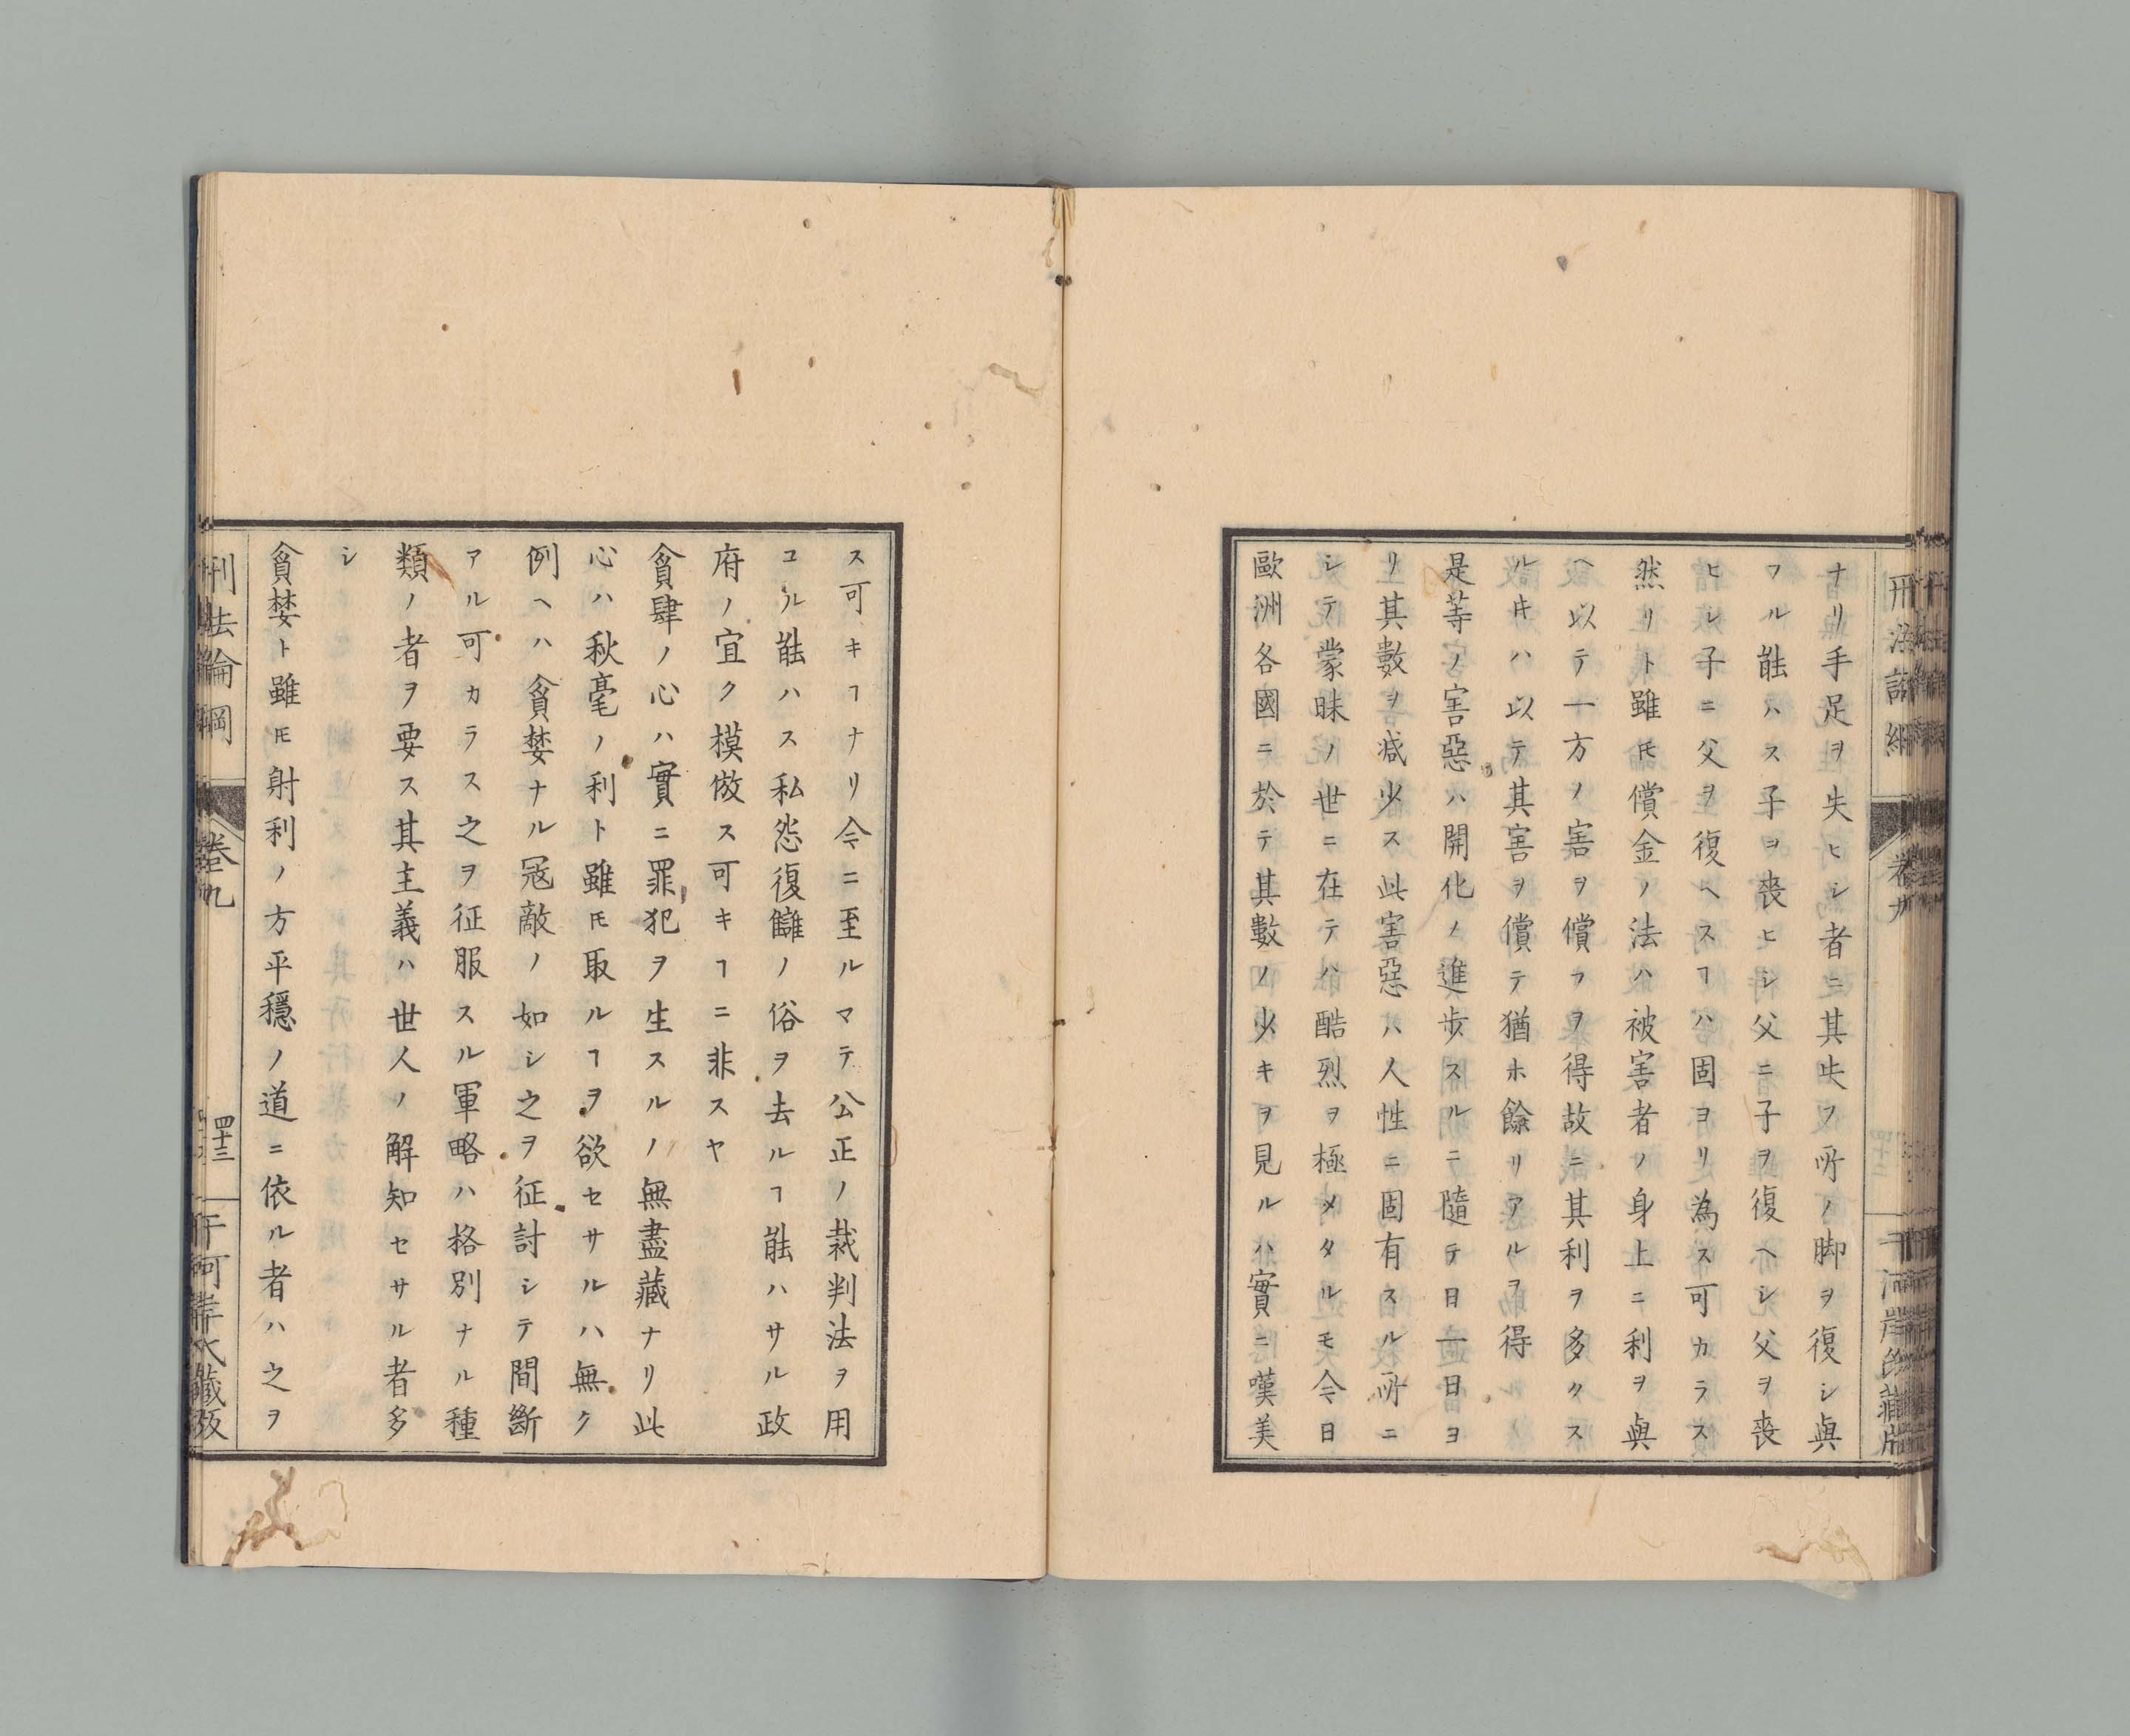 ナリ手足ヲ失ヒシ者ニ其失フ所ノ脚ヲ復シ與
フル能ハス子ヲ喪ヒシ父ニ子ヲ復ヘシ父ヲ喪
ヒシ子ニ父ヲ復ヘスヿハ固ヨリ為ス可カラス
然リト雖𪜈償金ノ法ハ被害者ノ身上ニ利ヲ與
ヘ以テ一方ノ害ヲ償フヲ得故ニ其利ヲ多クス
ルキハ以テ其害ヲ償テ猶ホ餘リアルヲ得
是等ノ害惡ハ開化ノ進歩スルニ隨テ日一日ヨ
リ其數ヲ減少ス此害惡ハ人性ニ固有スル所ニ
シテ蒙昧ノ世ニ在テハ酷烈ヲ極メタルモ今日
歐洲各國ニ於テ其數ノ少キヲ見ルハ實ニ嘆美
ス可キヿナリ今ニ至ルマテ公正ノ裁判法ヲ用
ユル能ハス私怨復讎ノ俗ヲ去ルヿ能ハサル政
府ノ宜ク模倣ス可キヿニ非スヤ
貪肆ノ心ハ實ニ罪犯ヲ生スルノ無盡藏ナリ此
心ハ秋毫ノ利ト雖𪜈取ルヿヲ欲セサルハ無ク
例ヘハ貪婪ナル冦敵ノ如シ之ヲ征討シテ間斷
アル可カラス之ヲ征服スル軍略ハ格別ナル種
類ノ者ヲ要ス其主義ハ世人ノ解知セサル者多
シ
貪婪ト雖𪜈射利ノ方平穩ノ道ニ依ル者ハ之ヲ
刑法論綱
卷九
四十三